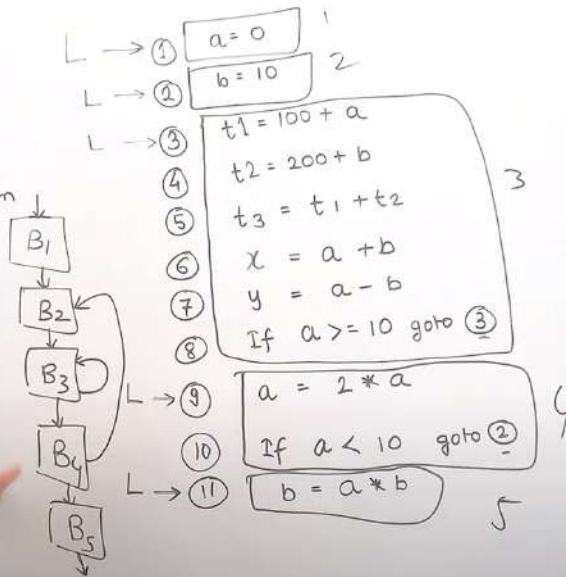 L → ① a = 0 1
L → ② b = 10 2
L → ③ t1 = 100 + a
④ t2 = 200 + b
3
⑤ t3 = t1 + t2
⑥ x = a + b
⑦ y = a - b
⑧ If a >= 10 goto ③
L → ⑨ a = 2 * a
⑩ If a < 10 goto ②
L → ⑪ b = a * b
5
B1
B2
B3
B4
B5